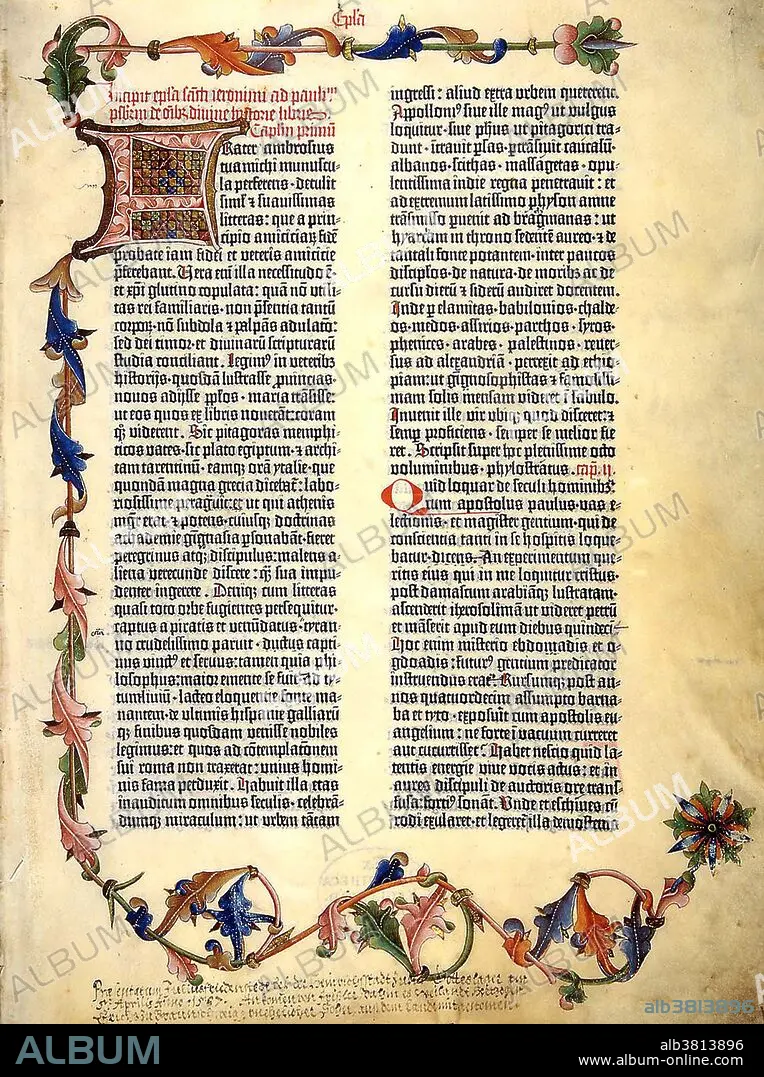 Epl'a
Incipit epl'a sancti ieronimi ad paulinū
psbrm de oībʒ divine hystorie libris.
Capl'm primū
Frater ambrosius
tua michi munuscu-
la perferens · detulit
siml' & suavissimas
litteras : que a prin-
cipio amiciciarꝫ fidē
probate iam fidei et veteris amicicie
preferebant. Vera enī illa necessitudo ē ·
et xp̄i glutino copulata : quam nō utili-
tas rei familiaris · non p̄sentia tantū
corporꝫ · nō subdola & palpās adulacō :
sed dei timor · et divinarū scripturarū
studia conciliant. Legim⁹ in veteribʒ
historijs · quosdā lustrasse ꝓuincias ·
novos adijsse ꝓp̄los · maria trāsisse :
ut eos quos ex libris noverāt : coram
qꝫ viderent. Sic pitagoras memphi-
ticos vates · sic plato egiptum · & archi-
tam tarentinū · eamqꝫ orā ytalie · que
quondā magna grecia diceba͡t : labo-
riosissime peragravit : et ut qui athenis
mgr̄ erat · & potens · cuiusqꝫ doctrinas
achademie gignasia ꝑsonabāt · fieret
peregrinus atqꝫ discipulus : malens a-
liena verecunde discere : qꝫ sua impu-
denter ingerere. Deniqꝫ cum litteras
quasi toto orbe fugientes persequitur ·
captus a piratis et venūdatus · tyran-
no crudelissimo paruit · ductus capti-
vus vinct⁹ et servus : tamen quia phi-
losophus : maior emente se fuit · ad ty-
tumlivium · lacteo eloquentie fonte ma-
nantem · de ultimis hispanie galliarū
qꝫ finibus quosdam venisse nobiles
legimus : et quos ad cōtemplacōnem
sui roma non traxerat : unius homi-
nis fama perduxit. Habuit illa etas
inauditum omnibus seculis · celebrā-
dumqꝫ miraculum : ut urbem tātam
ingressi : aliud extra urbem quererent.
Appolloni⁹ sive ille mag⁹ ut vulgus
loquitur · sive ph'us · ut pitagorici tra-
dunt · ītravit ꝑsas · ꝑtrāsivit caucasū ·
albanos · scithas · massagetas · opu-
lentissima indie regna penetravit : et
ad extremum latissimo physon amne
trāsmisso ꝑvenit ad bragmanas : ut
hyarcam in throno sedentē aureo · & de
tantali fonte potantem · inter paucos
discipl'os · de natura · de moribʒ ac de
cursu dierū & siderū audiret docentem.
Inde ꝑ elamitas · babilonios · chalde-
os · medos · assirios · parthos · syros ·
phenices · arabes · palestinos · rever-
sus ad alexandriā · perrexit ad ethio-
piam : ut gignosophistas & famosissi-
mam solis mensam videret ī sabulo.
Invenit ille vir ubiqꝫ quod disceret : &
semꝑ proficiens · semper se melior fie-
ret. Scripsit super hoc plenissime octo
voluminibus · phylostratus. cap. ij.
Quid loquar de seculi hominibʒ :
cum apostolus paulus · vas e-
lectionis · et magister gentium · qui de
conscientia tanti in se hospitis loque-
batur · dicens. An experimentum que-
ritis eius qui in me loquitur cristus ·
post damascum arabiāqꝫ lustratam ·
ascenderit iherosolimā ut videret petrū
et māserit apud eum diebus quindeci-
Hoc enim misterio ebdomadis et o-
gdoadis : futur⁹ gentium predicator
instruendus erat. Rursumqꝫ post an-
nos quatuordecim assumpto barna-
ba et tyto · exposuit cum apostolis eu-
angelium : ne forte ī vacuum curreret
aut cucurrisset. Habet nescio quid la-
tentis energie vive vocis actus : et in
aures discipuli de auctoris ore trans-
fusa : forti⁹ sonat. Unde et eschines cū
rodi exularet · et legeret̄ illa demostenis
alb3813896
ALBUM
alb3813896
www.album-online.com